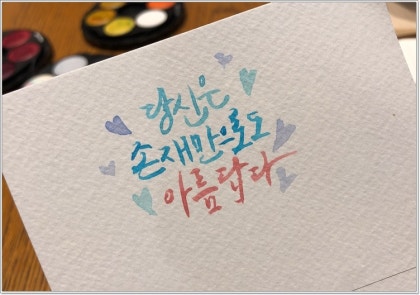 당신은
존재만으로도
아름답다